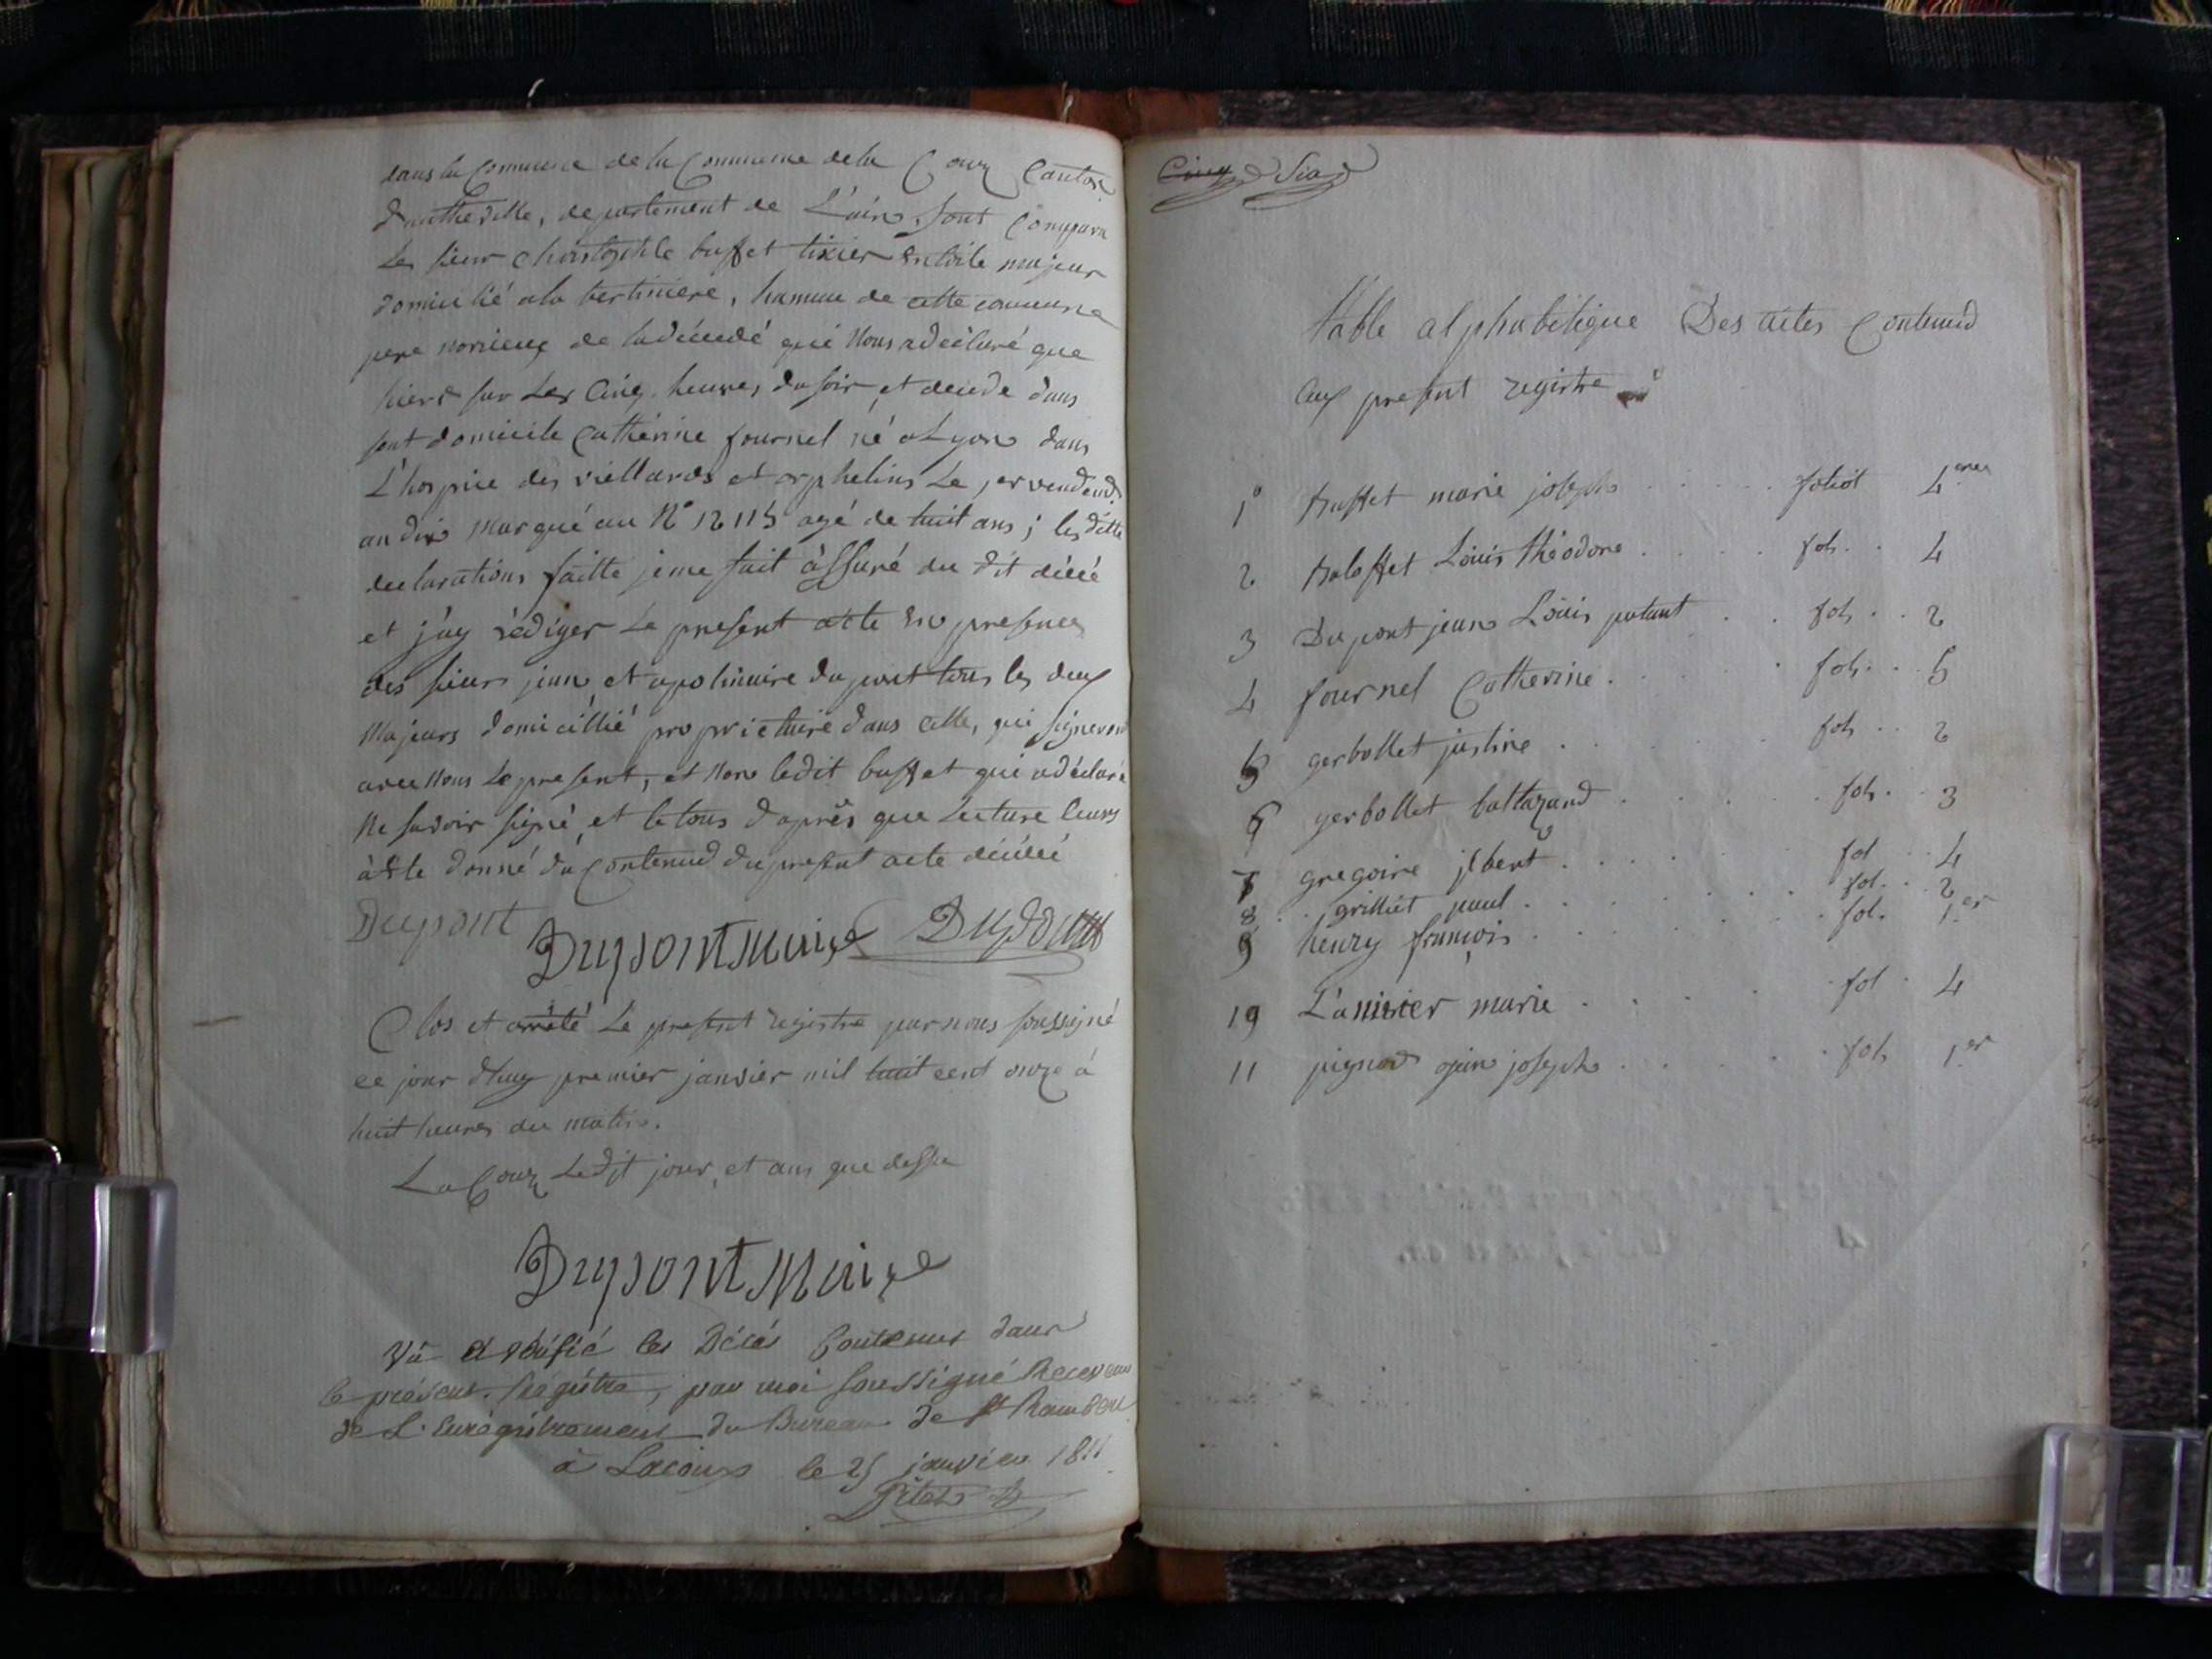 dans la Commune de la Commune de la Cour Canton
d'hautheville, departement de L'ain, sont Comparu
Le sieur Christophle buffet tixier En toile majeur
domicilié a la bertiniere, hameau de cette commune
pere noricieu de la décédé qui Nous a déclaré que
hiers sur Les Cinq heures du soir et décédé dans
sont domicile Catherine fournel né a Lyon dans
L'hospice des viellards et orphelins Le 1er vendend
an dix Marqué au N° 12115 agé de huit ans ; les ditte
declarations faitte je me suit àssuré du dit décé
et j'ay rédiger Le present acte En presences
des sieurs jean et apolinaire dupont tous les deux
Majeurs domicillié proprietaire dans cette, qui signeront
avec Nous Le present, et Non ledit buffet qui a déclaré
Ne savoir signé et le tous d'aprês que Lecture leurs
à été donné du Contenud du present acte décédé
Dupont Dupont Maire Dupont
Clos et arrêté Le present registre par nous soussigné
ce jour d'huy premier janvier mil huit cent onze à
huit heures du matin.
La Cour Le dit jour et ans que dessu
Dupont Maire
Vû et vérifié les Décés Contenus dans
le présent Régitre, par moi soussigné Receveur
de L'Enrégistrement du Bureau de St Rambert
à Lacoux le 25 janvier 1811
Cinq Six
table alphabétique Des actes Contenud
Aux present registre
1° buffet marie joseph ..... foliot 1eres
2 baloffet Louis théodore .... fol. . 4
3 Dupont jean Louis putant . . fol . . 2
4 fournel Catherine . . . fol. . . 5
5 gerbollet justine . . . . fol . . 2
6 gerbollet baltazard . . . . fol. . 3
7 gregoire jlbert . . . . fol . . 4
8 . . grilliet paul . . . . . fol. . 2
9 henry françois . . . . . fol. 1.er
10 L'amirier marie . . . . fol . 4
11 pignod ojine joseph . . . . fol 1er